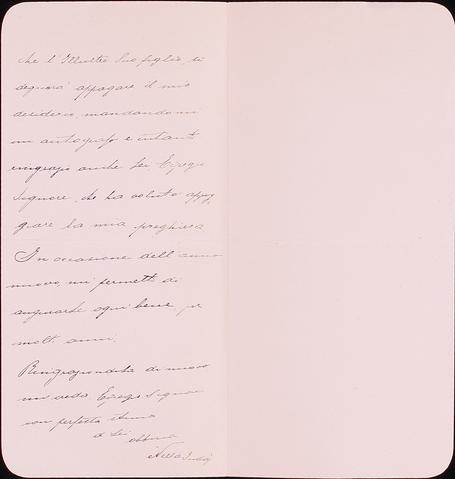 che l'Illustre Suo figlio, si
degnerà appagare il mio
desiderio, mandandomi
un autografo e intanto
ringrazio anche Lei Egregio
Signore, che ha voluto appog
giare la mia preghiera
In occasione dell'anno
nuovo mi permetto di
augurarle ogni bene, per
molti anni.
Ringraziandola di nuovo
mi creda Egregio Signore
con perfetta stima
di Lei obbma